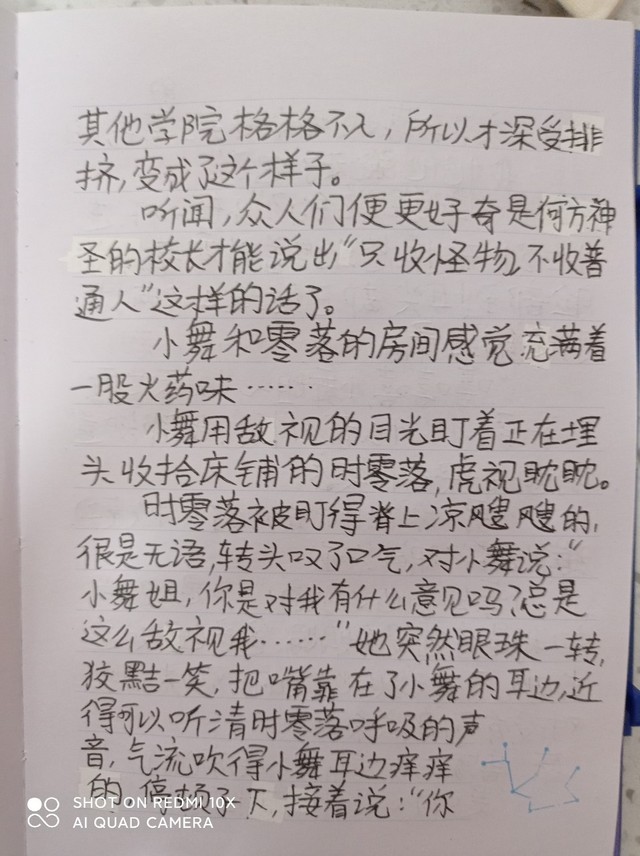 其他学院格格不入，所以才深受排
挤，变成了这个样子。
听闻，众人们便更好奇是何方神
圣的校长才能说出“只收怪物不收普
通人”这样的话了。
小舞和零落的房间感觉充满着
一股火药味……
小舞用敌视的目光盯着正在埋
头收拾床铺的时零落，虎视眈眈。
时零落被盯得脊上凉飕飕的，
很是无语，转头叹了口气，对小舞说：“
小舞姐，你是对我有什么意见吗？总是
这么敌视我……”她突然眼珠一转，
狡黠一笑，把嘴靠在了小舞的耳边，近
得可以听清时零落呼吸的声
音，气流吹得小舞耳边痒痒
的，停顿了下，接着说：“你
SHOT ON REDMI 10X
AI QUAD CAMERA